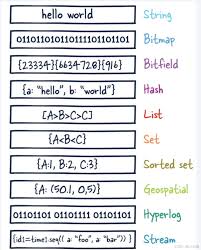 hello world String
011011010110111101101101 Bitmap
{23334}{6634728}{916} Bitfield
{a: "hello", b: "world"} Hash
[A>B>C>C] List
{A<B<C} Set
{A:1, B:2, C:3} Sorted set
{A: (50.1, 0.5)} Geospatial
01101101 01101111 01101101 Hyperlog
{id1=time1.seq(( a: "foo", a: "bar"))} Stream